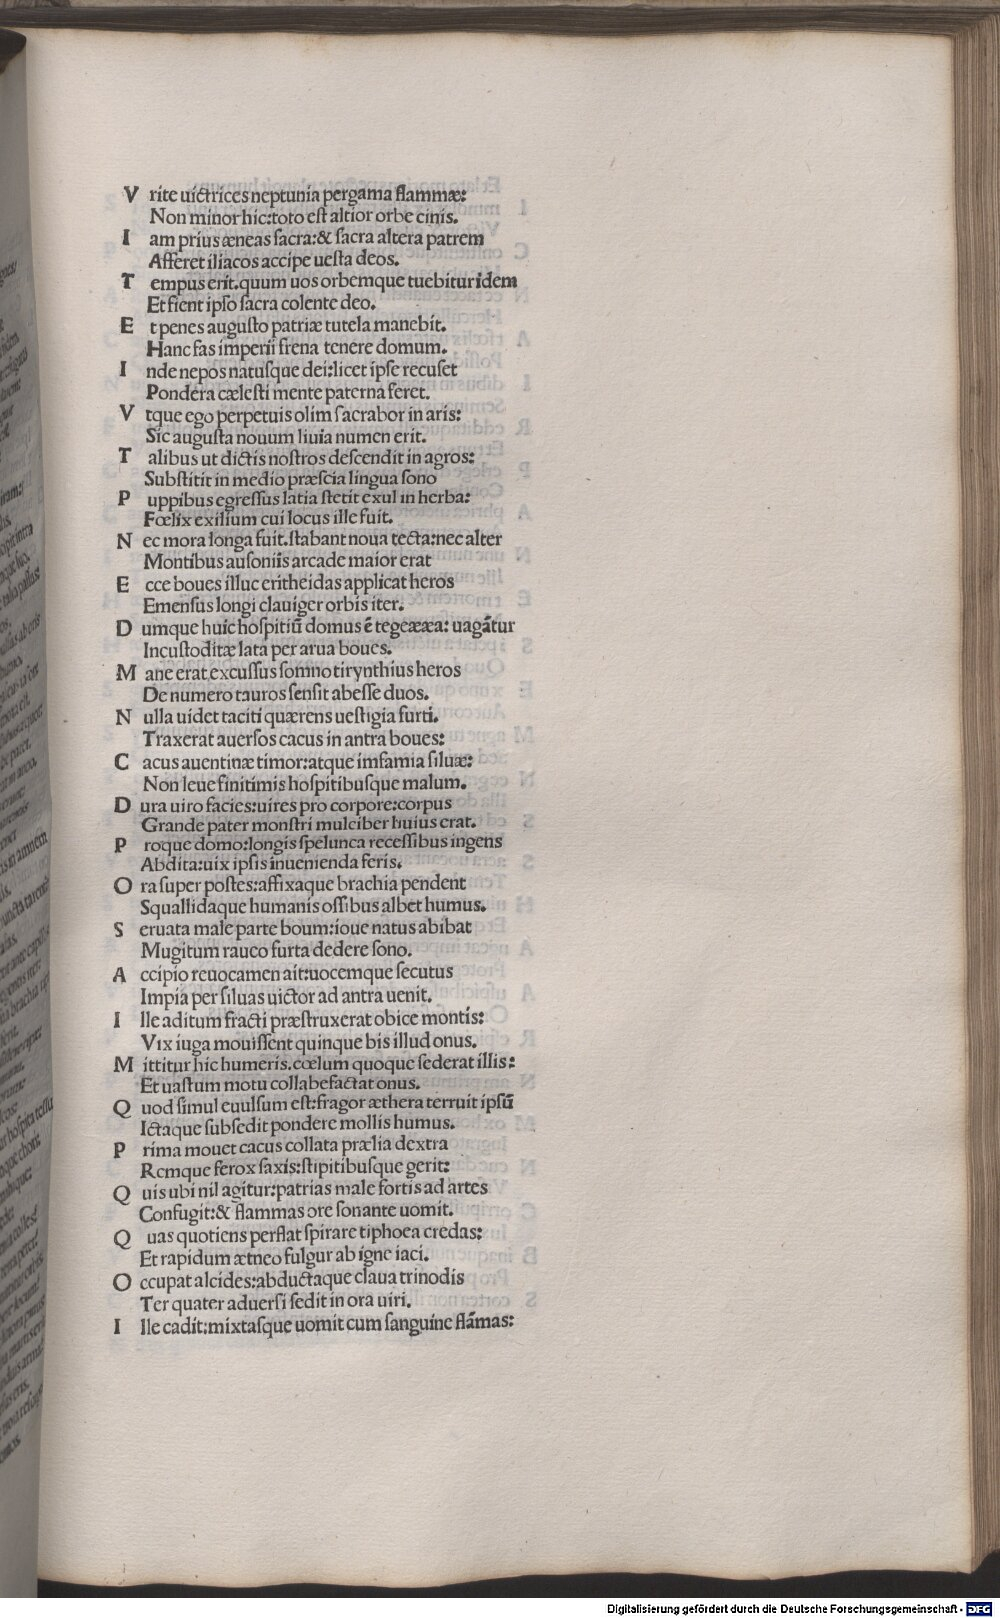 V rite uictrices neptunia pergama flammæ:
Non minor hic:toto est altior orbe cinis.
I am prius æneas sacra:& sacra altera patrem
Afferet iliacos accipe uesta deos.
T empus erit.quum uos orbemque tuebitur idem
Et fient ipso sacra colente deo.
E t penes augusto patriæ tutela manebit.
Hanc fas imperii frena tenere domum.
I nde nepos natusque dei:licet ipse recuset
Pondera cælesti mente paterna feret.
V tque ego perpetuis olim sacrabor in aris:
Sic augusta nouum liuia numen erit.
T alibus ut dictis nostros descendit in agros:
Substitit in medio præscia lingua sono
P uppibus egressus latia stetit exul in herba:
Fœlix exilium cui locus ille fuit.
N ec mora longa fuit.stabant noua tecta:nec alter
Montibus ausoniis arcade maior erat
E cce boues illuc eritheidas applicat heros
Emensus longi clauiger orbis iter.
D umque huic hospitiū domus ē tegeææa: uagātur
Incustoditæ lata per arua boues.
M ane erat excussus somno tirynthius heros
De numero tauros sensit abesse duos.
N ulla uidet taciti quærens uestigia furti.
Traxerat auersos cacus in antra boues:
C acus auentinæ timor:atque imfamia siluæ:
Non leue finitimis hospitibusque malum.
D ura uiro facies:uires pro corpore:corpus
Grande pater monstri mulciber huius erat.
P roque domo:longis spelunca recessibus ingens
Abdita:uix ipsis inuenienda feris.
O ra super postes:affixaque brachia pendent
Squallidaque humanis ossibus albet humus.
S eruata male parte boum:ioue natus abibat
Mugitum rauco furta dedere sono.
A ccipio reuocamen ait:uocemque secutus
Impia per siluas uictor ad antra uenit.
I lle aditum fracti præstruxerat obice montis:
Vix iuga mouissent quinque bis illud onus.
M ittitur hic humeris.cœlum quoque sederat illis:
Et uastum motu collabefactat onus.
Q uod simul euulsum est:fragor æthera terruit ipsū
Ictaque subsedit pondere mollis humus.
P rima mouet cacus collata prælia dextra
Remque ferox saxis:stipitibusque gerit:
Q uis ubi nil agitur:patrias male fortis ad artes
Confugit:& flammas ore sonante uomit.
Q uas quotiens perflat spirare tiphoea credas:
Et rapidum ætneo fulgur ab igne iaci.
O ccupat alcides:abductaque claua trinodis
Ter quater aduersi sedit in ora uiri.
I lle cadit:mixtasque uomit cum sanguine flāmas:
Digitalisierung gefördert durch die Deutsche Forschungsgemeinschaft - DFG